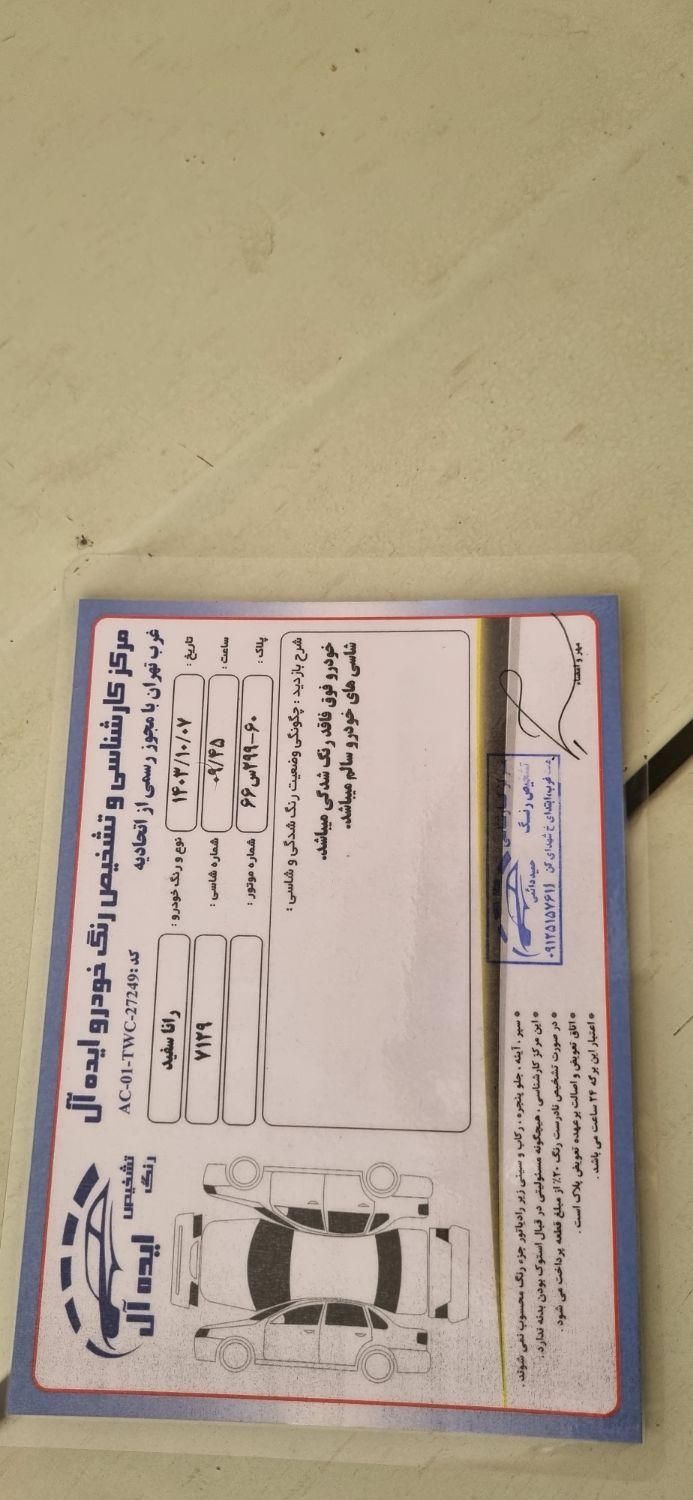 مرکز کارشناسی و تشخیص رنگ خودرو ایده آل
غرب تهران با مجوز رسمی از اتحادیه
کد :AC-01-TWC-27249
ایده آل
تشخیص
رنگ
تاریخ :
۱۴۰۳/۱۰/۰۷
نوع و رنگ خودرو :
رانا سفید
ساعت :
۰۹/۴۵
شماره شاسی :
۷۱۲۹
پلاک :
۶۰-۲۹۹س۶۶
شماره موتور :
شرح بازدید : چگونگی وضعیت رنگ شدگی و شاسی :
خودرو فوق فاقد رنگ شدگی میباشد.
شاسی های خودرو سالم میباشد.
مهر و امضاء
تشخیص رنگ
حمید دائمی
غرب، ابتدای خ شهدای کن
۰۹۱۲۵۱۵۷۶۱۱
* سپر ، آینه ، جلو پنجره ، رکاب و سینی زیر رادیاتور جزء رنگ محسوب نمی شوند .
* این مرکز کارشناسی ، هیچگونه مسئولیتی در قبال استوک بودن بدنه ندارد .
* در صورت تشخیص نادرست رنگ ۲۰٪ از مبلغ قطعه پرداخت می شود .
* اتاق تعویض و اصالت برعهده تعویض پلاک است .
* اعتبار این برگه ۲۴ ساعت می باشد .